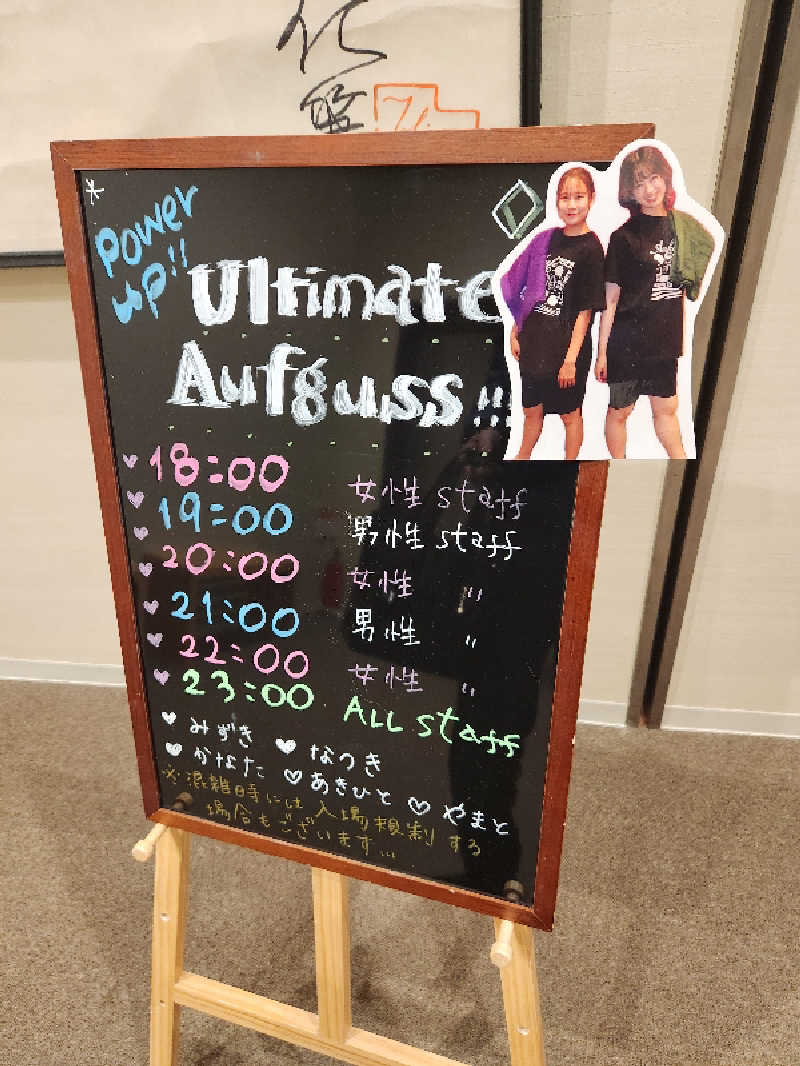 Power up!!
Ultimate
Aufguss!!!
18:00 女性 staff
19:00 男性 staff
20:00 女性 〃
21:00 男性 〃
22:00 女性 〃
23:00 ALL staff
みずき なつき
かなた あきひと やまと
※混雑時には入場規制する
場合もございます...